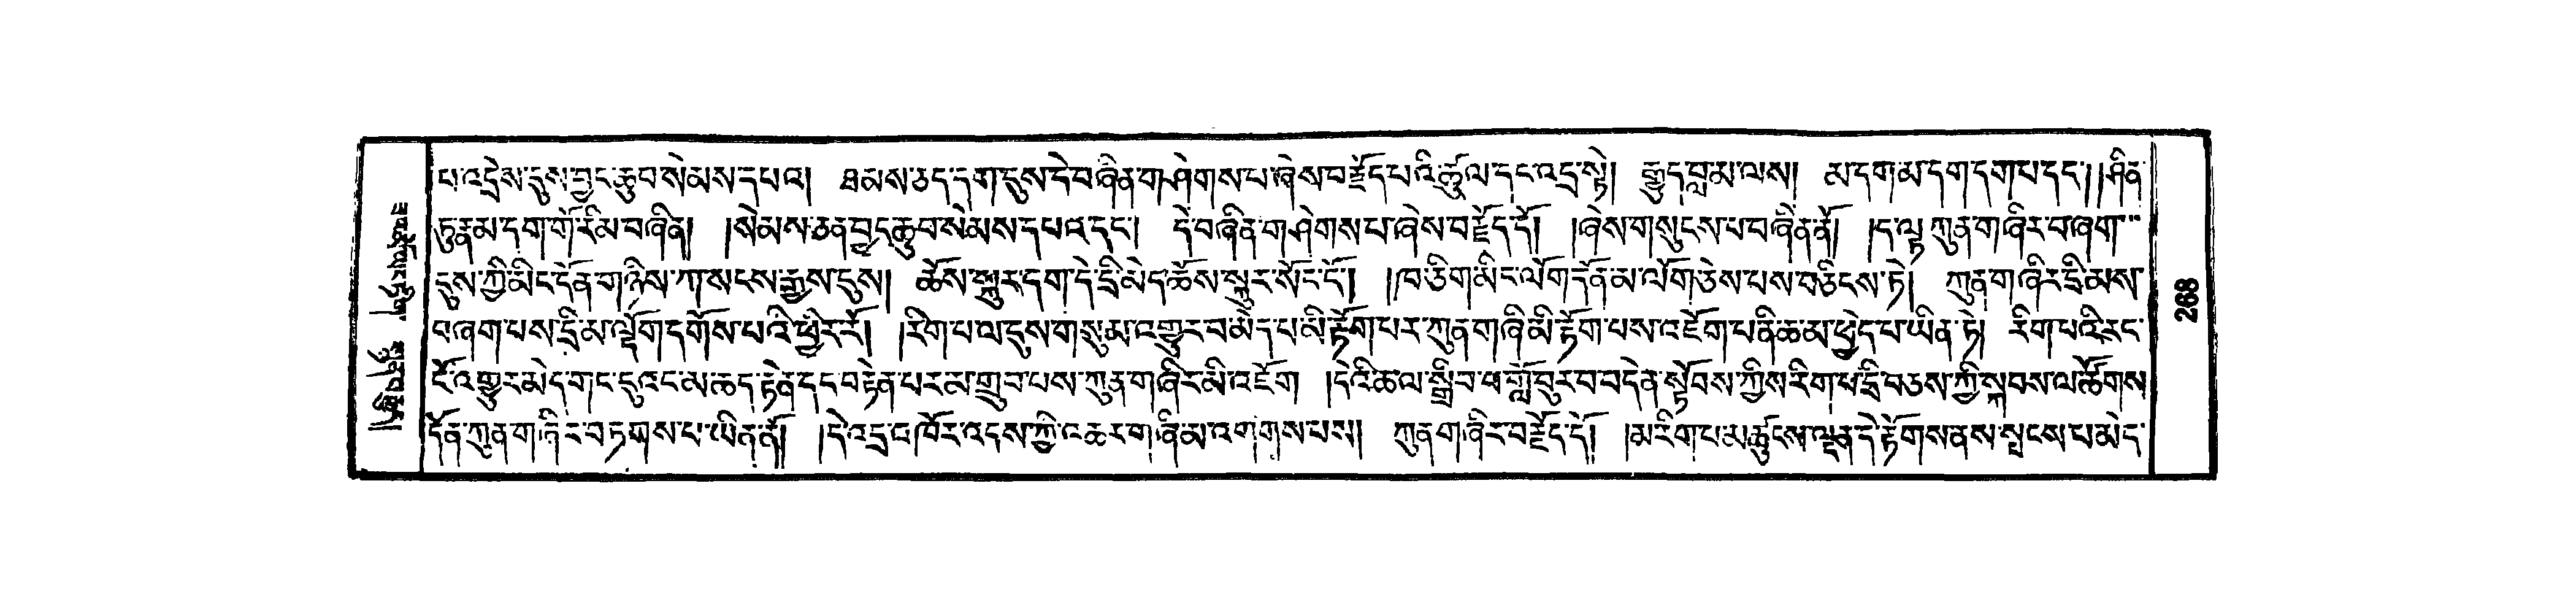 པ་འདྲེས་དུས་བྱང་ཆུབ་སེམས་དཔའ། ཐམས་ཅད་དག་དུས་དེ་བཞིན་གཤེགས་པ་ཞེས་བརྗོད་པའི་ཚུལ་དང་འདྲ་སྟེ། རྒྱུད་བླ་མ་ལས། མ་དག་མ་དག་དག་པ་དང་། །ཤིན་
ཏུ་རྣམ་དག་གོ་རིམ་བཞིན། །སེམས་ཅན་བྱང་ཆུབ་སེམས་དཔའ་དང་། དེ་བཞིན་གཤེགས་པ་ཞེས་བརྗོད་དོ། །ཞེས་གསུངས་པ་བཞིན་ནོ། །ད་ལྟ་ཀུན་གཞིར་བཞག་
དུས་ཀྱི་མིང་དོན་གཉིས་ཀ་སངས་རྒྱས་དུས། ཆོས་སྐུར་དག་དེ་དྲི་མེད་ཆོས་སྐུར་སོང་ངོ་། །ཁ་ཅིག་མིང་ལོག་དོན་མ་ལོག་ཅེས་པས་བཅིངས་ཏེ། ཀུན་གཞིར་དྲི་མས་
བཞག་པས་དྲི་མ་ལྡོག་དགོས་པའི་ཕྱིར་རོ། །རིག་པ་ལ་དུས་གསུམ་འགྱུར་བ་མེད་པ་མི་རྟོག་པར་ཀུན་གཞི་མི་རྟོག་པས་འཇོག་པ་ནི་ཆ་མ་ཕྱེད་པ་ཡིན་ཏེ། རིག་པའི་རང་
ངོ་འགྱུར་མེད་གང་དུའང་མ་ཆད་རྟེན་དང་བརྟེན་པར་མ་གྲུབ་པས་ཀུན་གཞིར་མི་འཇོག །དེའི་ཆ་ལ་སྒྲིབ་ཕ་གློ་བུར་བ་བདེན་སྟོབས་ཀྱིས་རིག་པ་དྲི་བཅས་ཀྱི་སྐབས་ལ་ཚོགས་
དོན་ཀུན་གཞིར་བཏགས་པ་ཡིན་ནོ། །དེ་འདྲ་བ་ཁོར་འདས་ཀྱི་འཆར་གཞི་མ་འགགས་པས། ཀུན་གཞིར་བརྗོད་དོ། །མ་རིག་པ་མཚུངས་ལྡན་དེ་རྟོགས་ནས་སྤངས་པ་མེད་
268